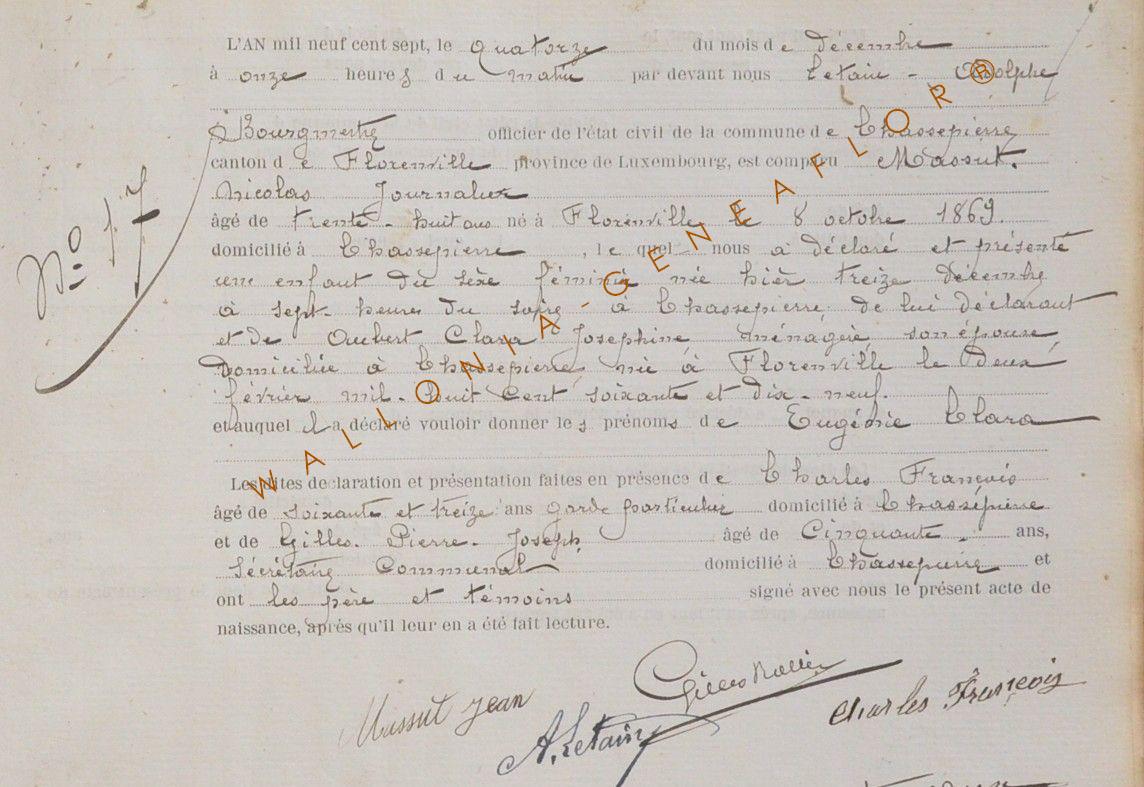 L'AN mil neuf cent sept, le quatorze du mois de décembre
à onze heures du matin par devant nous Letain - Adolphe
Bourgmestre officier de l'état civil de la commune de Chassepierre
canton de Florenville province de Luxembourg, est comparu Massut.
Nicolas Journalier
âgé de trente - huit ans né à Florenville le 8 octobre 1869.
domicilié à Chassepierre, lequel nous a déclaré et présenté
une enfant du sèxe féminin née hier treize décembre
à sept heures du soir, à Chassepierre, de lui déclarant
et de Oubert Clara Josephine ménagère son épouse
Domiciliée à Chassepierre, née à Florenville le Deux
février mil - huit cent soixante et dix - neuf.
et auquel il a déclaré vouloir donner les prénoms de Eugénie Clara
Les dites declaration et présentation faites en présence de Charles François
âgé de soixante et treize ans garde particulier domicilié à Chassepierre
et de Gilles. Pierre - Joseph, âgé de Cinquante - ans,
Sécrétaire Communal domicilié à Chassepierre et
ont les père et témoins signé avec nous le présent acte de
naissance, après qu'il leur en a été fait lecture.
N° 17
WALLONIA-GENEAFLOR®
Massut Jean Gilles
A. Letain Charles François